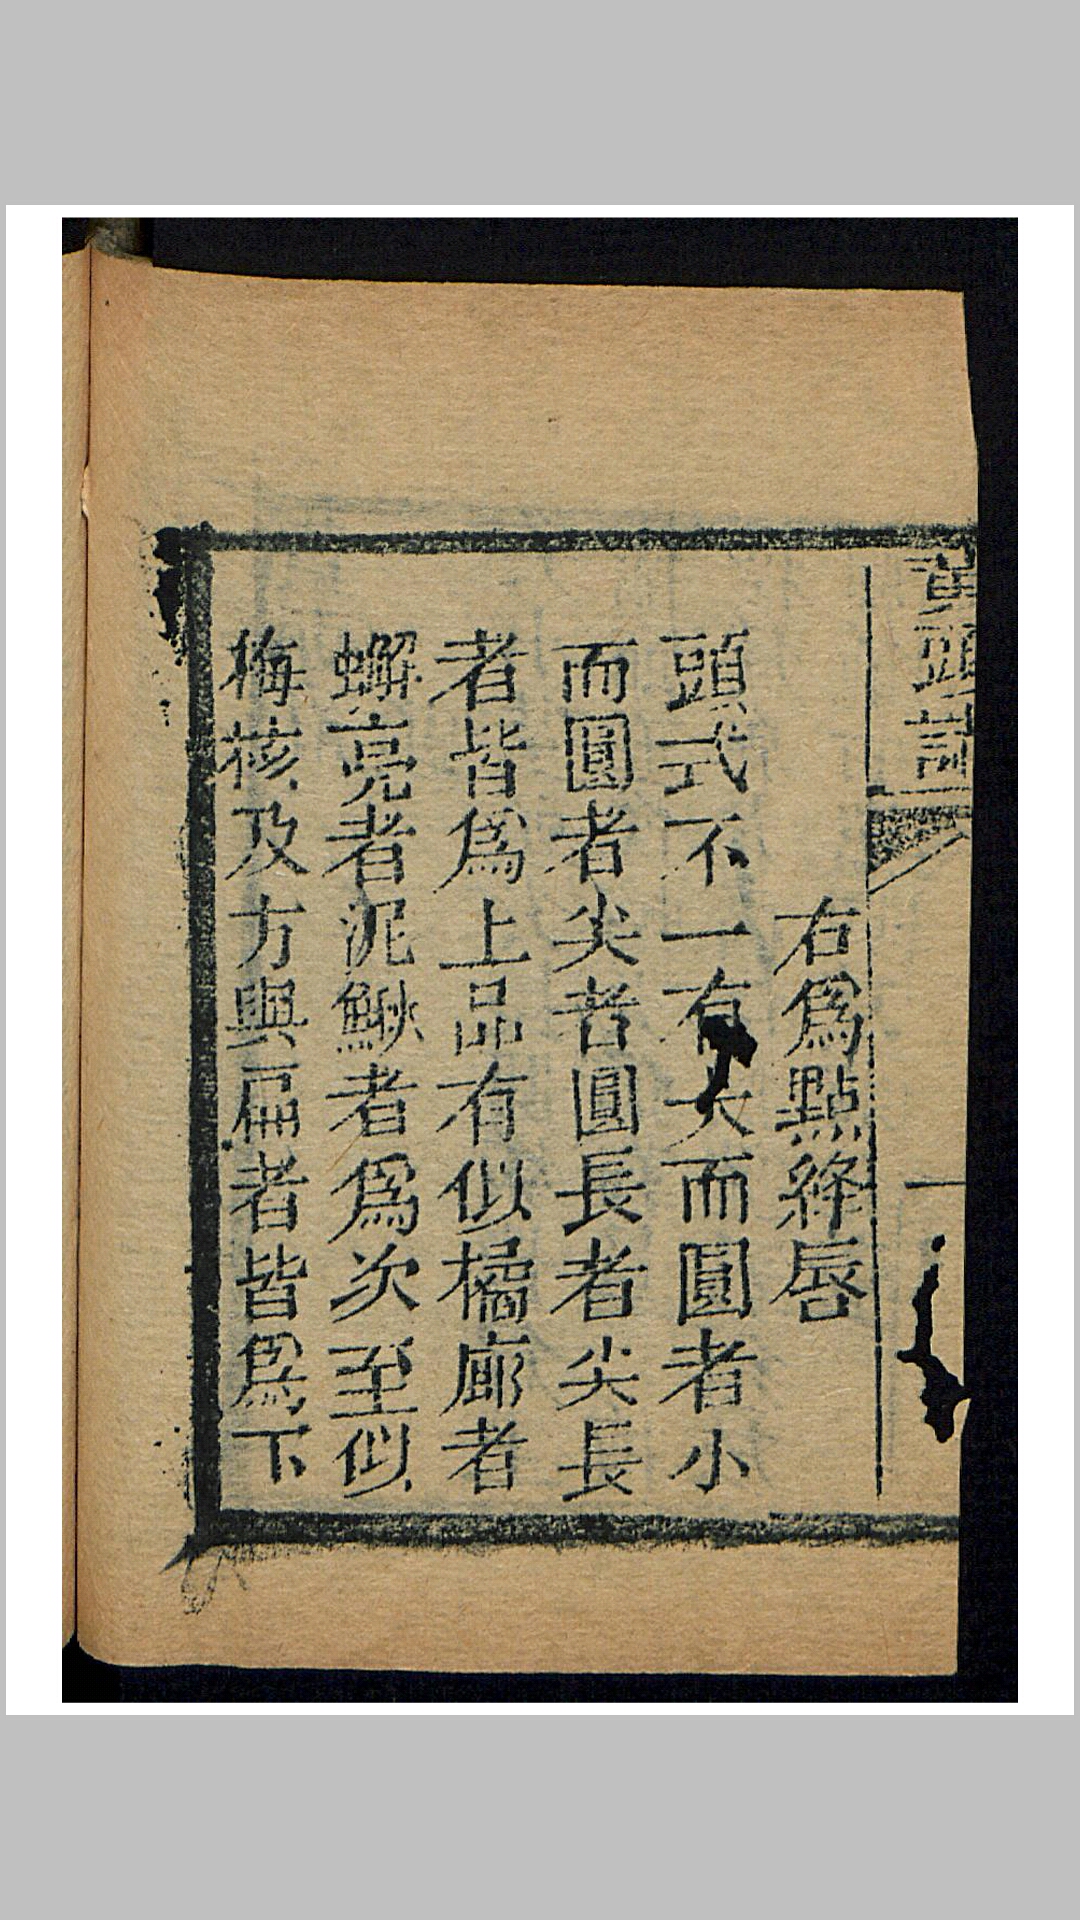 黃頭誌
一
右爲點絳唇
頭式不一有大而圓者小
而圓者尖者圓長者尖長
者皆爲上品有似橘廊者
蠏亮者泥鰍者爲次至似
梅核及方與扁者皆爲下